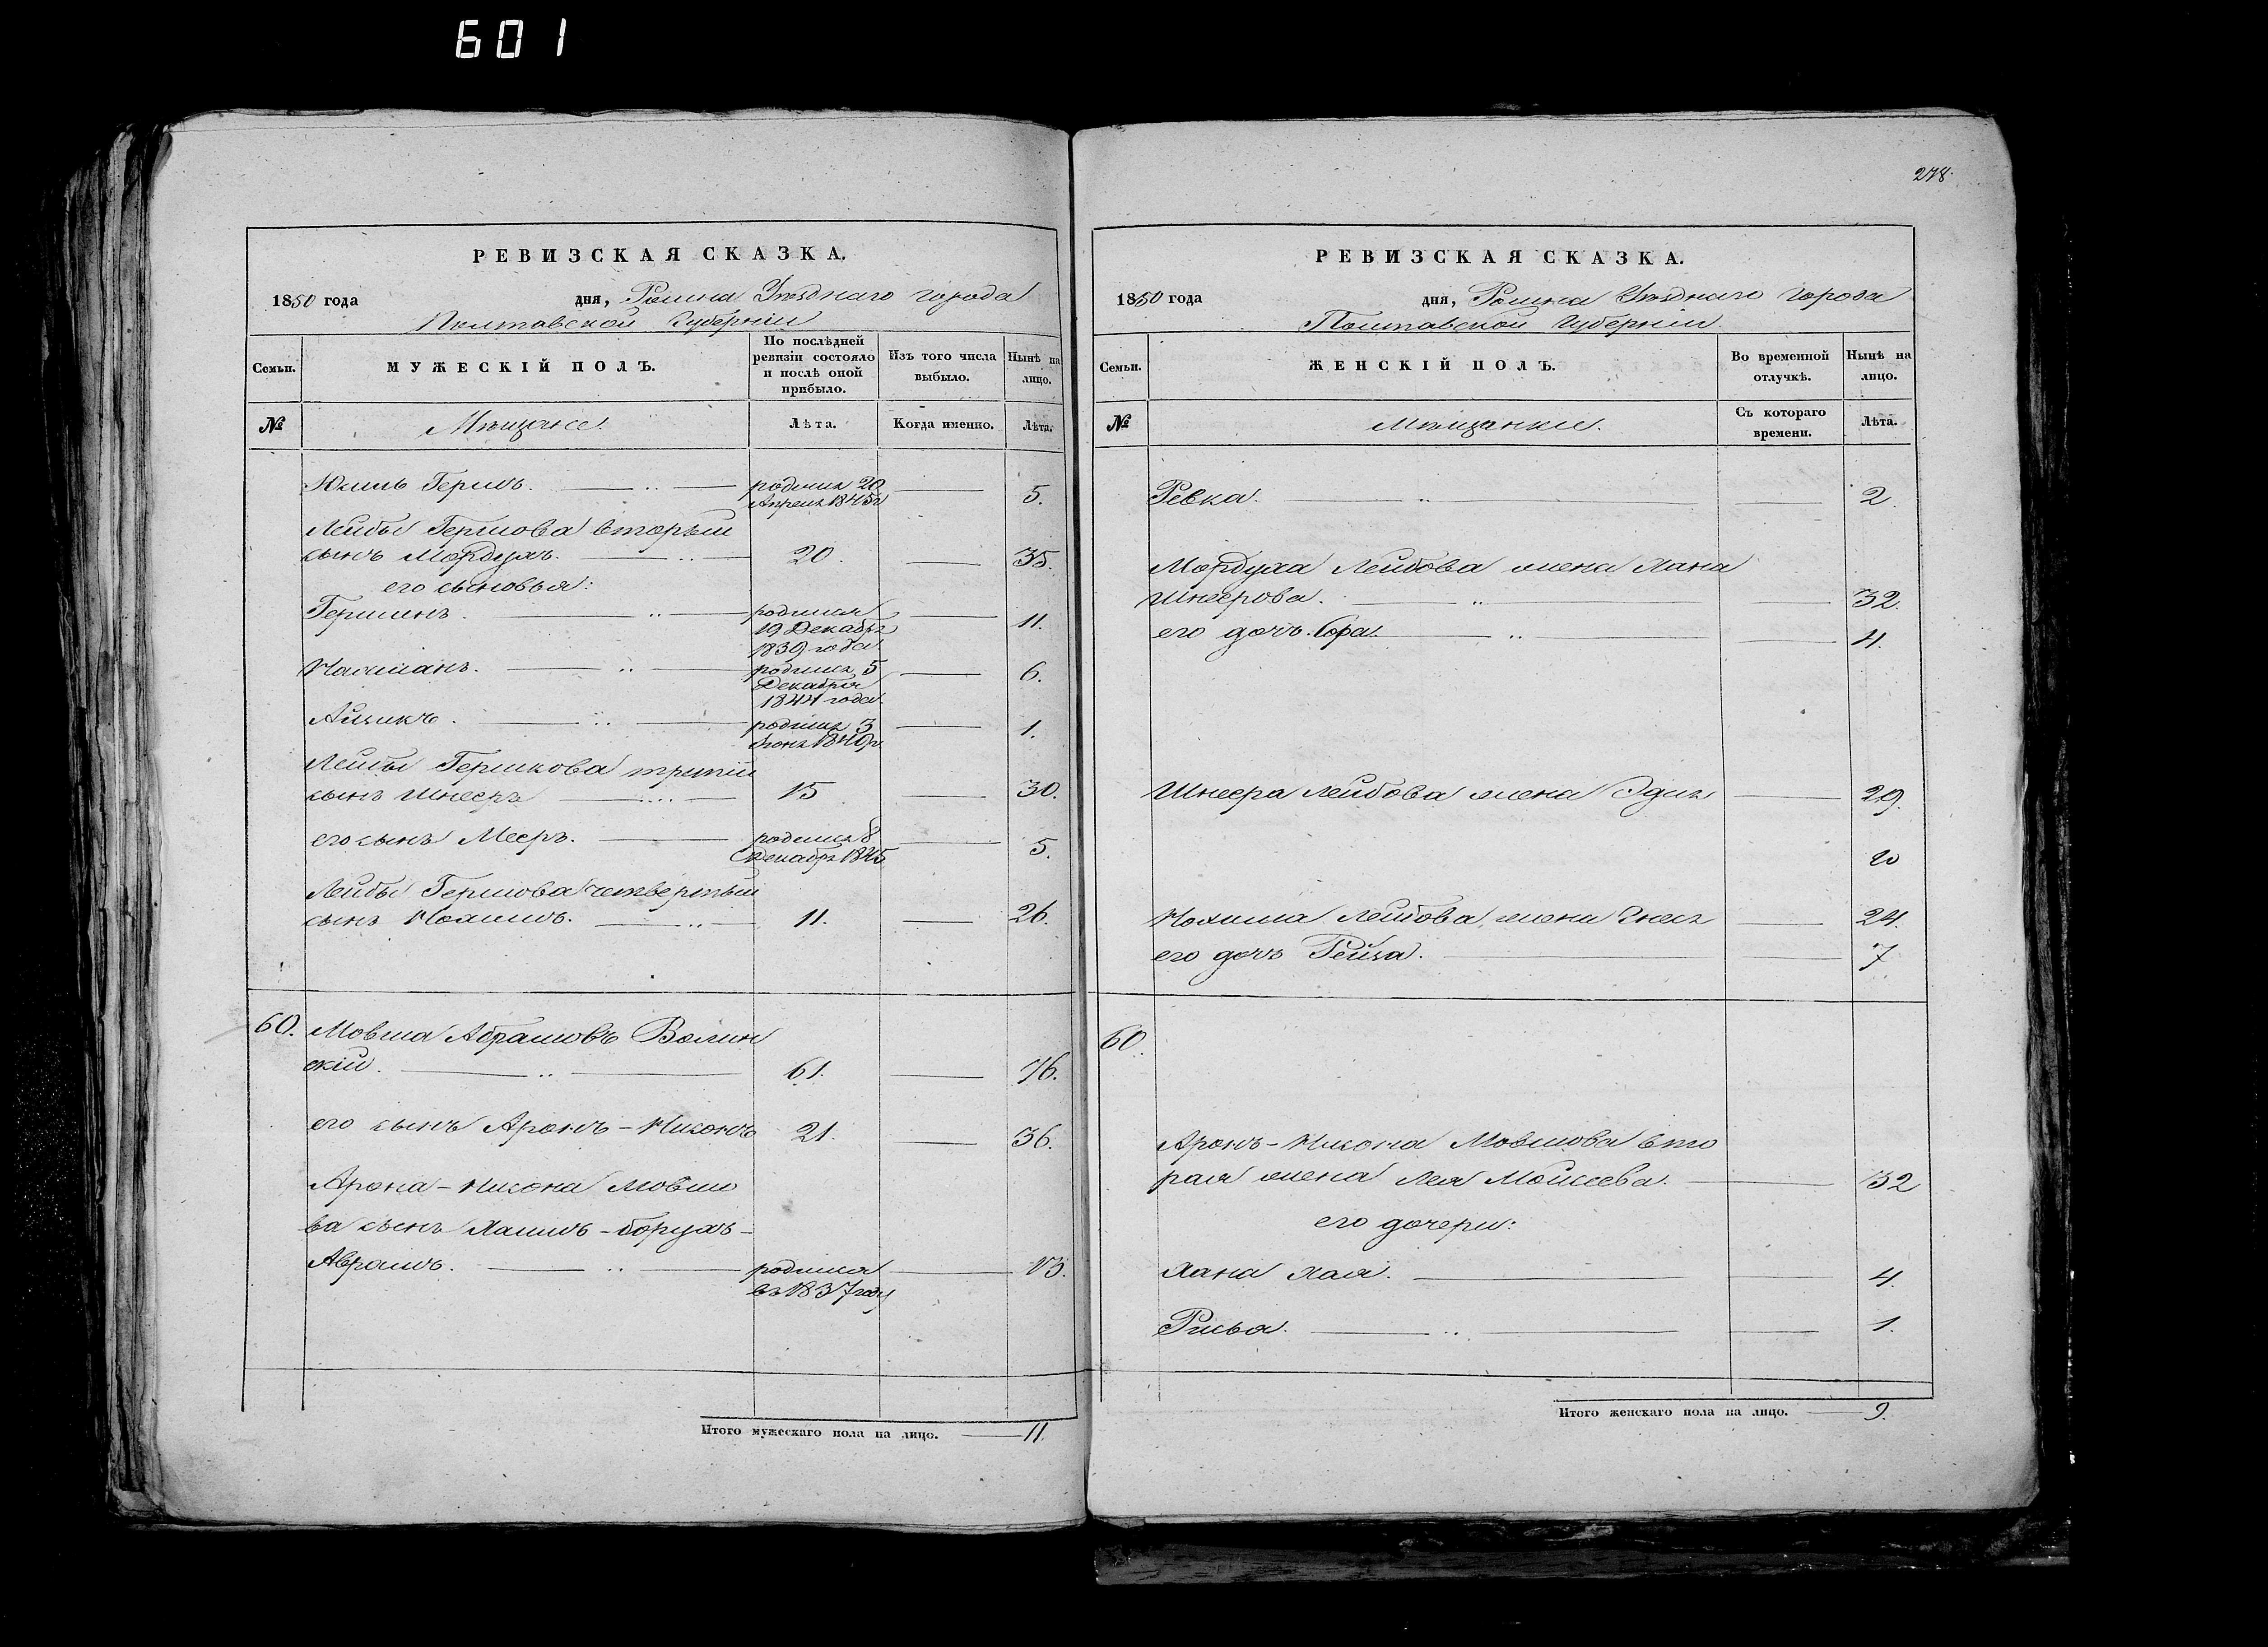 601
278.
РЕВИЗСКАЯ СКАЗКА.
1850 года дня, Ромна Уѣзднаго города
Полтавской Губерніи
Семьи.
МУЖЕСКІЙ ПОЛЪ.
По послѣдней
ревизіи состояло
и послѣ оной
прибыло.
Изъ того числа
выбыло.
Нынѣ на
лицо.
№
Мѣщане.
Лѣта.
Когда именно.
Лѣта.
Гершъ. родился 20 5.
Апреля 1845г
Лейбы Гершова вторый
сынъ Мордухъ. 20. 35.
его сыновья:
Гершенъ. родился 11.
19 Декабря
1839 года
Нахманъ. родился 5 6.
Декабря
1844 года.
Айзикъ. родился 3 1.
1849г
Лейбы Гершкова третій
сынъ Шнееръ 15 30.
его сынъ Мееръ. родился 8 5.
Декабря 1845
Лейбы Гершова четвертый
сынъ Нохимъ. 11. 26.
60. Мовша Абрамовъ Волин
скій. 61. 76.
его сынъ Аронъ-Нисонъ 21. 36.
Арона-Нисона Мовшо
ва сынъ Хаимъ-Борухъ-
Аврамъ. родился 13.
въ 1837 году
Итого мужескаго пола на лицо. 11.
РЕВИЗСКАЯ СКАЗКА.
1850 года дня, Ромна Уѣзднаго города
Полтавской Губерніи.
Семьи.
ЖЕНСКІЙ ПОЛЪ.
Во временной
отлучкѣ.
Нынѣ на
лицо.
№
Мѣщанки.
Съ котораго
времени.
Лѣта.
Ревка. 2
Мордуха Лейбова жена Хана
Шнеерова. 32.
его дочь Сора. 4.
Шнеера Лейбова жена 29.
Нохима Лейбова жена 24.
его дочь Рейза. 7
60.
Аронъ-Нисона Мовшова вто
рая жена Лея Мойсеева. 32
его дочери:
Хана Хая. 4.
Рисва. 1.
Итого женскаго пола на лицо. 9.